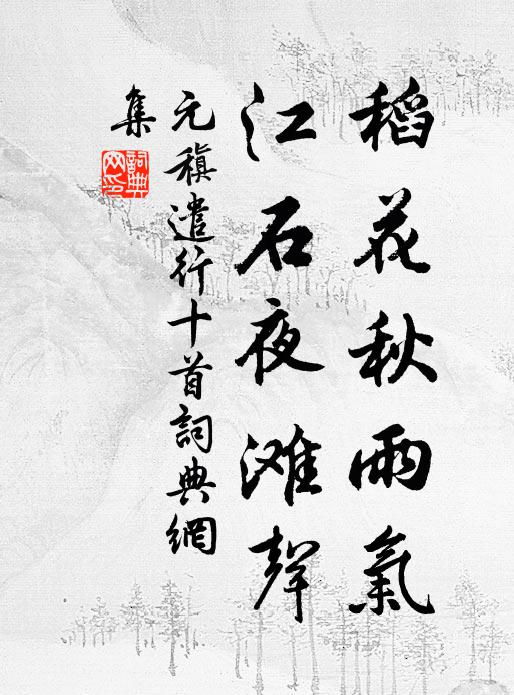 稻花秋雨氣
江石夜滩聲
元稹遣行十首詞典網
集
詞典网印